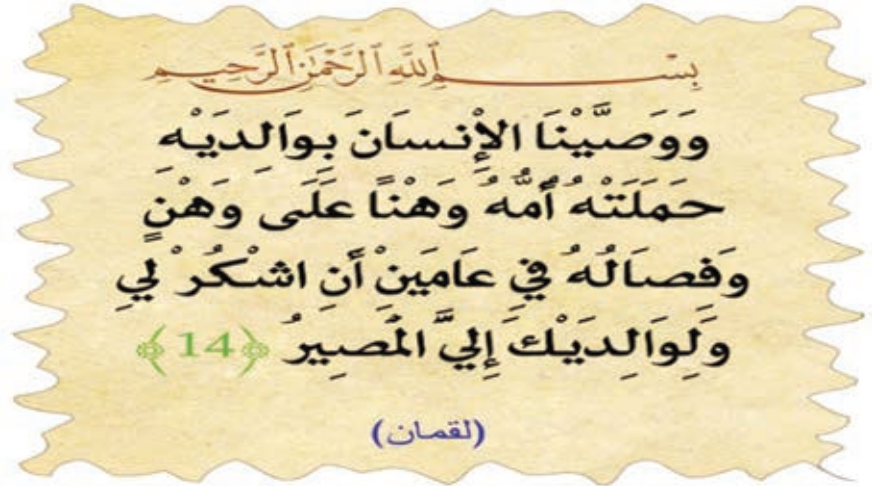 بِسْمِ ٱللَّهِ ٱلرَّحْمَٰنِ ٱلرَّحِيمِ
وَوَصَّيْنَا الإِنسَانَ بِوَالِدَيْهِ
حَمَلَتْهُ أُمُّهُ وَهْنًا عَلَى وَهْنٍ
وَفِصَالُهُ فِي عَامَيْنِ أَنِ اشْكُرْ لِي
وَلِوَالِدَيْكَ إِلَيَّ الْمَصِيرُ ﴿14﴾
(لقمان)